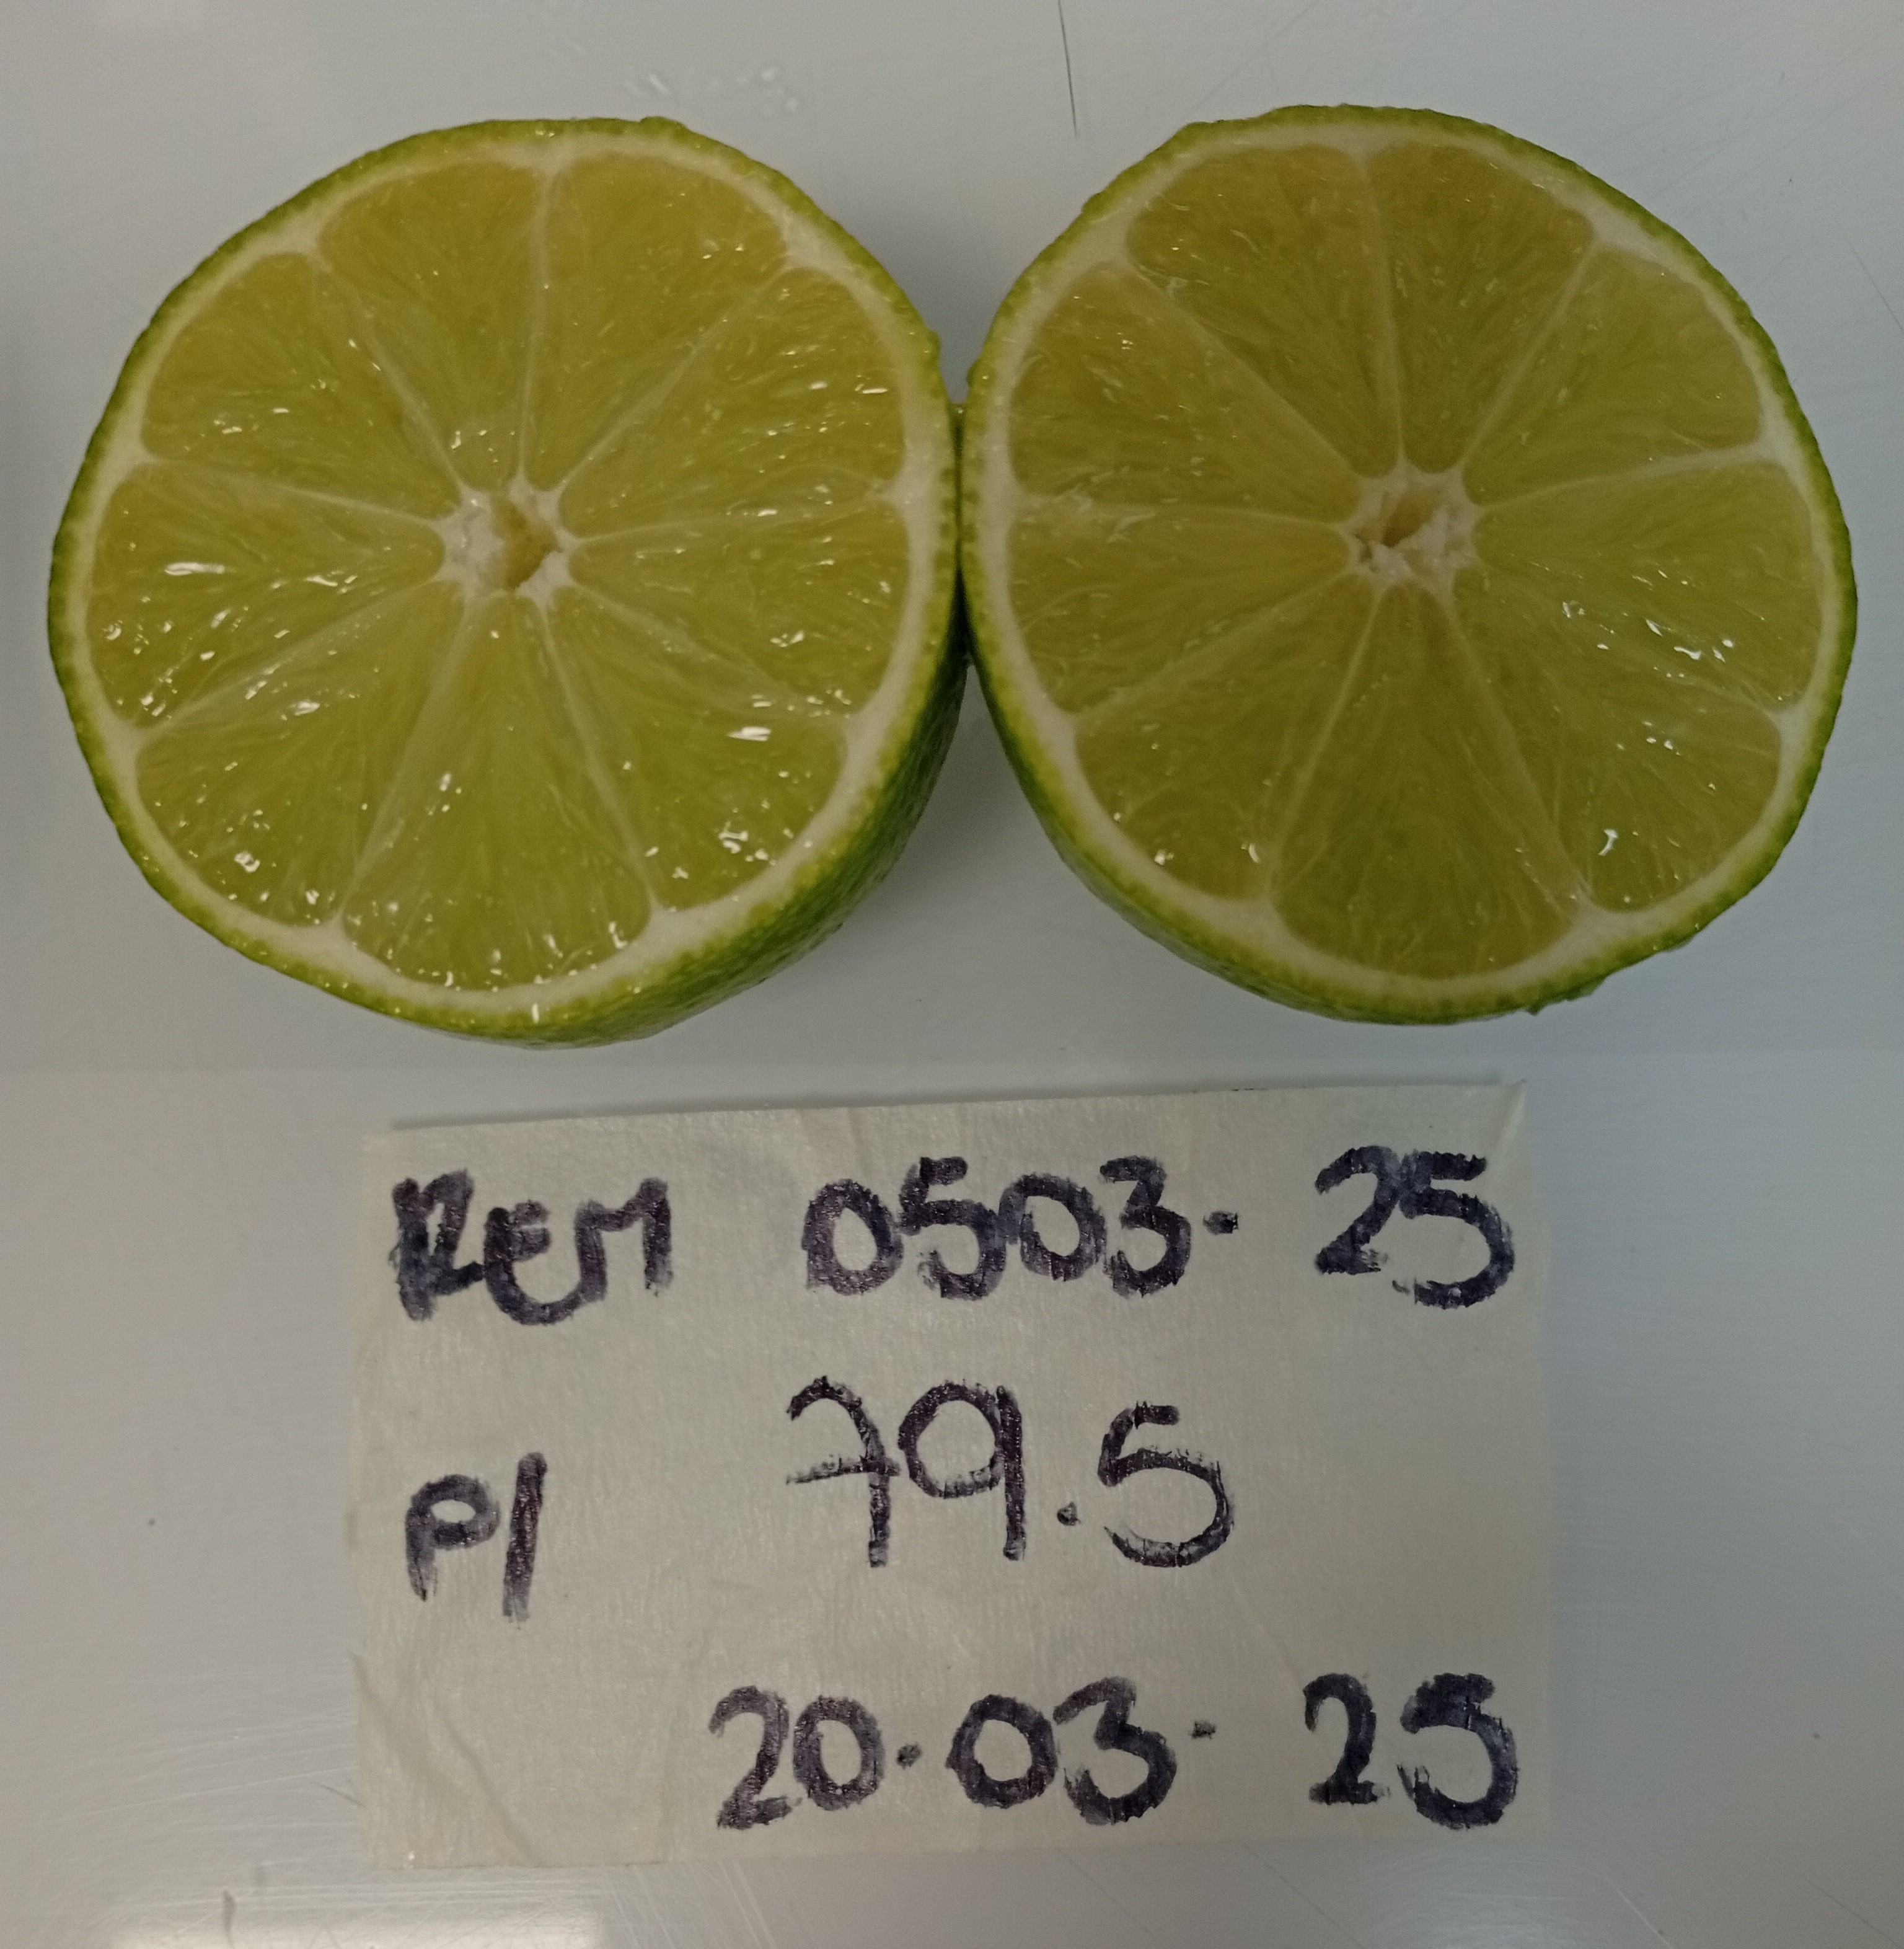 REM 0503-25
P/ 79.5
20.03-25